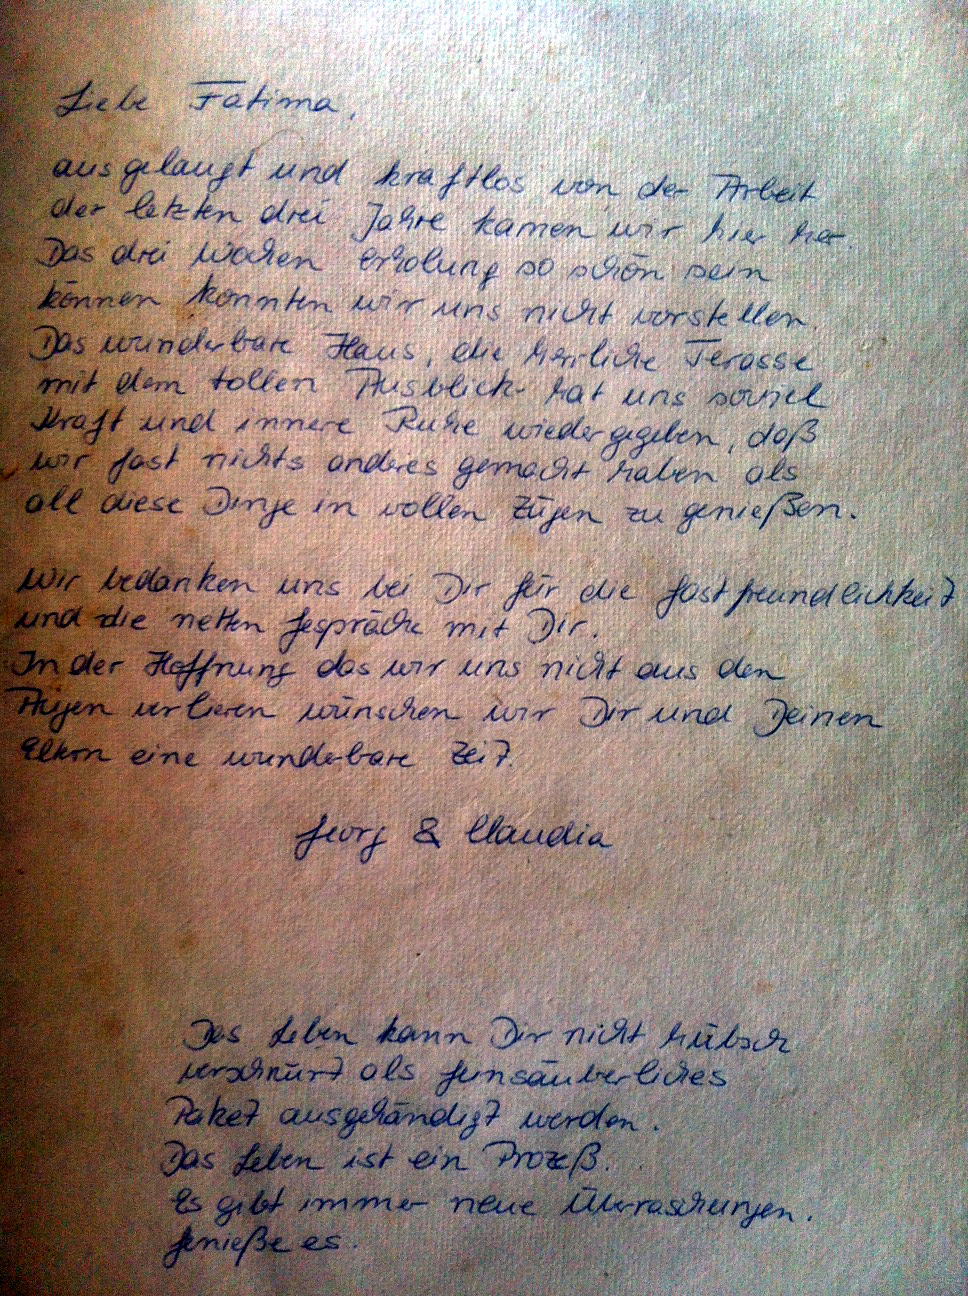 Liebe Fatima,
ausgelaugt und kraftlos von der Arbeit
der letzten drei Jahre kamen wir hier her.
Das drei Wochen Erholung so schön sein
können konnten wir uns nicht vorstellen.
Das wunderbare Haus, die herrliche Terasse
mit dem tollen Ausblick hat uns soviel
Kraft und innere Ruhe wiedergegeben, daß
wir fast nichts anderes gemacht haben als
all diese Dinge in vollen Zügen zu genießen.
Wir bedanken uns bei Dir für die Gastfreundlichkeit
und die netten Gespräche mit Dir.
In der Hoffnung das wir uns nicht aus den
Augen verlieren wünschen wir Dir und Deinen
Eltern eine wunderbare Zeit.
Georg & Claudia
Das Leben kann Dir nicht hübsch
verschnürt als feinsäuberliches
Paket ausgehändigt werden.
Das Leben ist ein Prozeß.
Es gibt immer neue Überraschungen.
Genieße es.